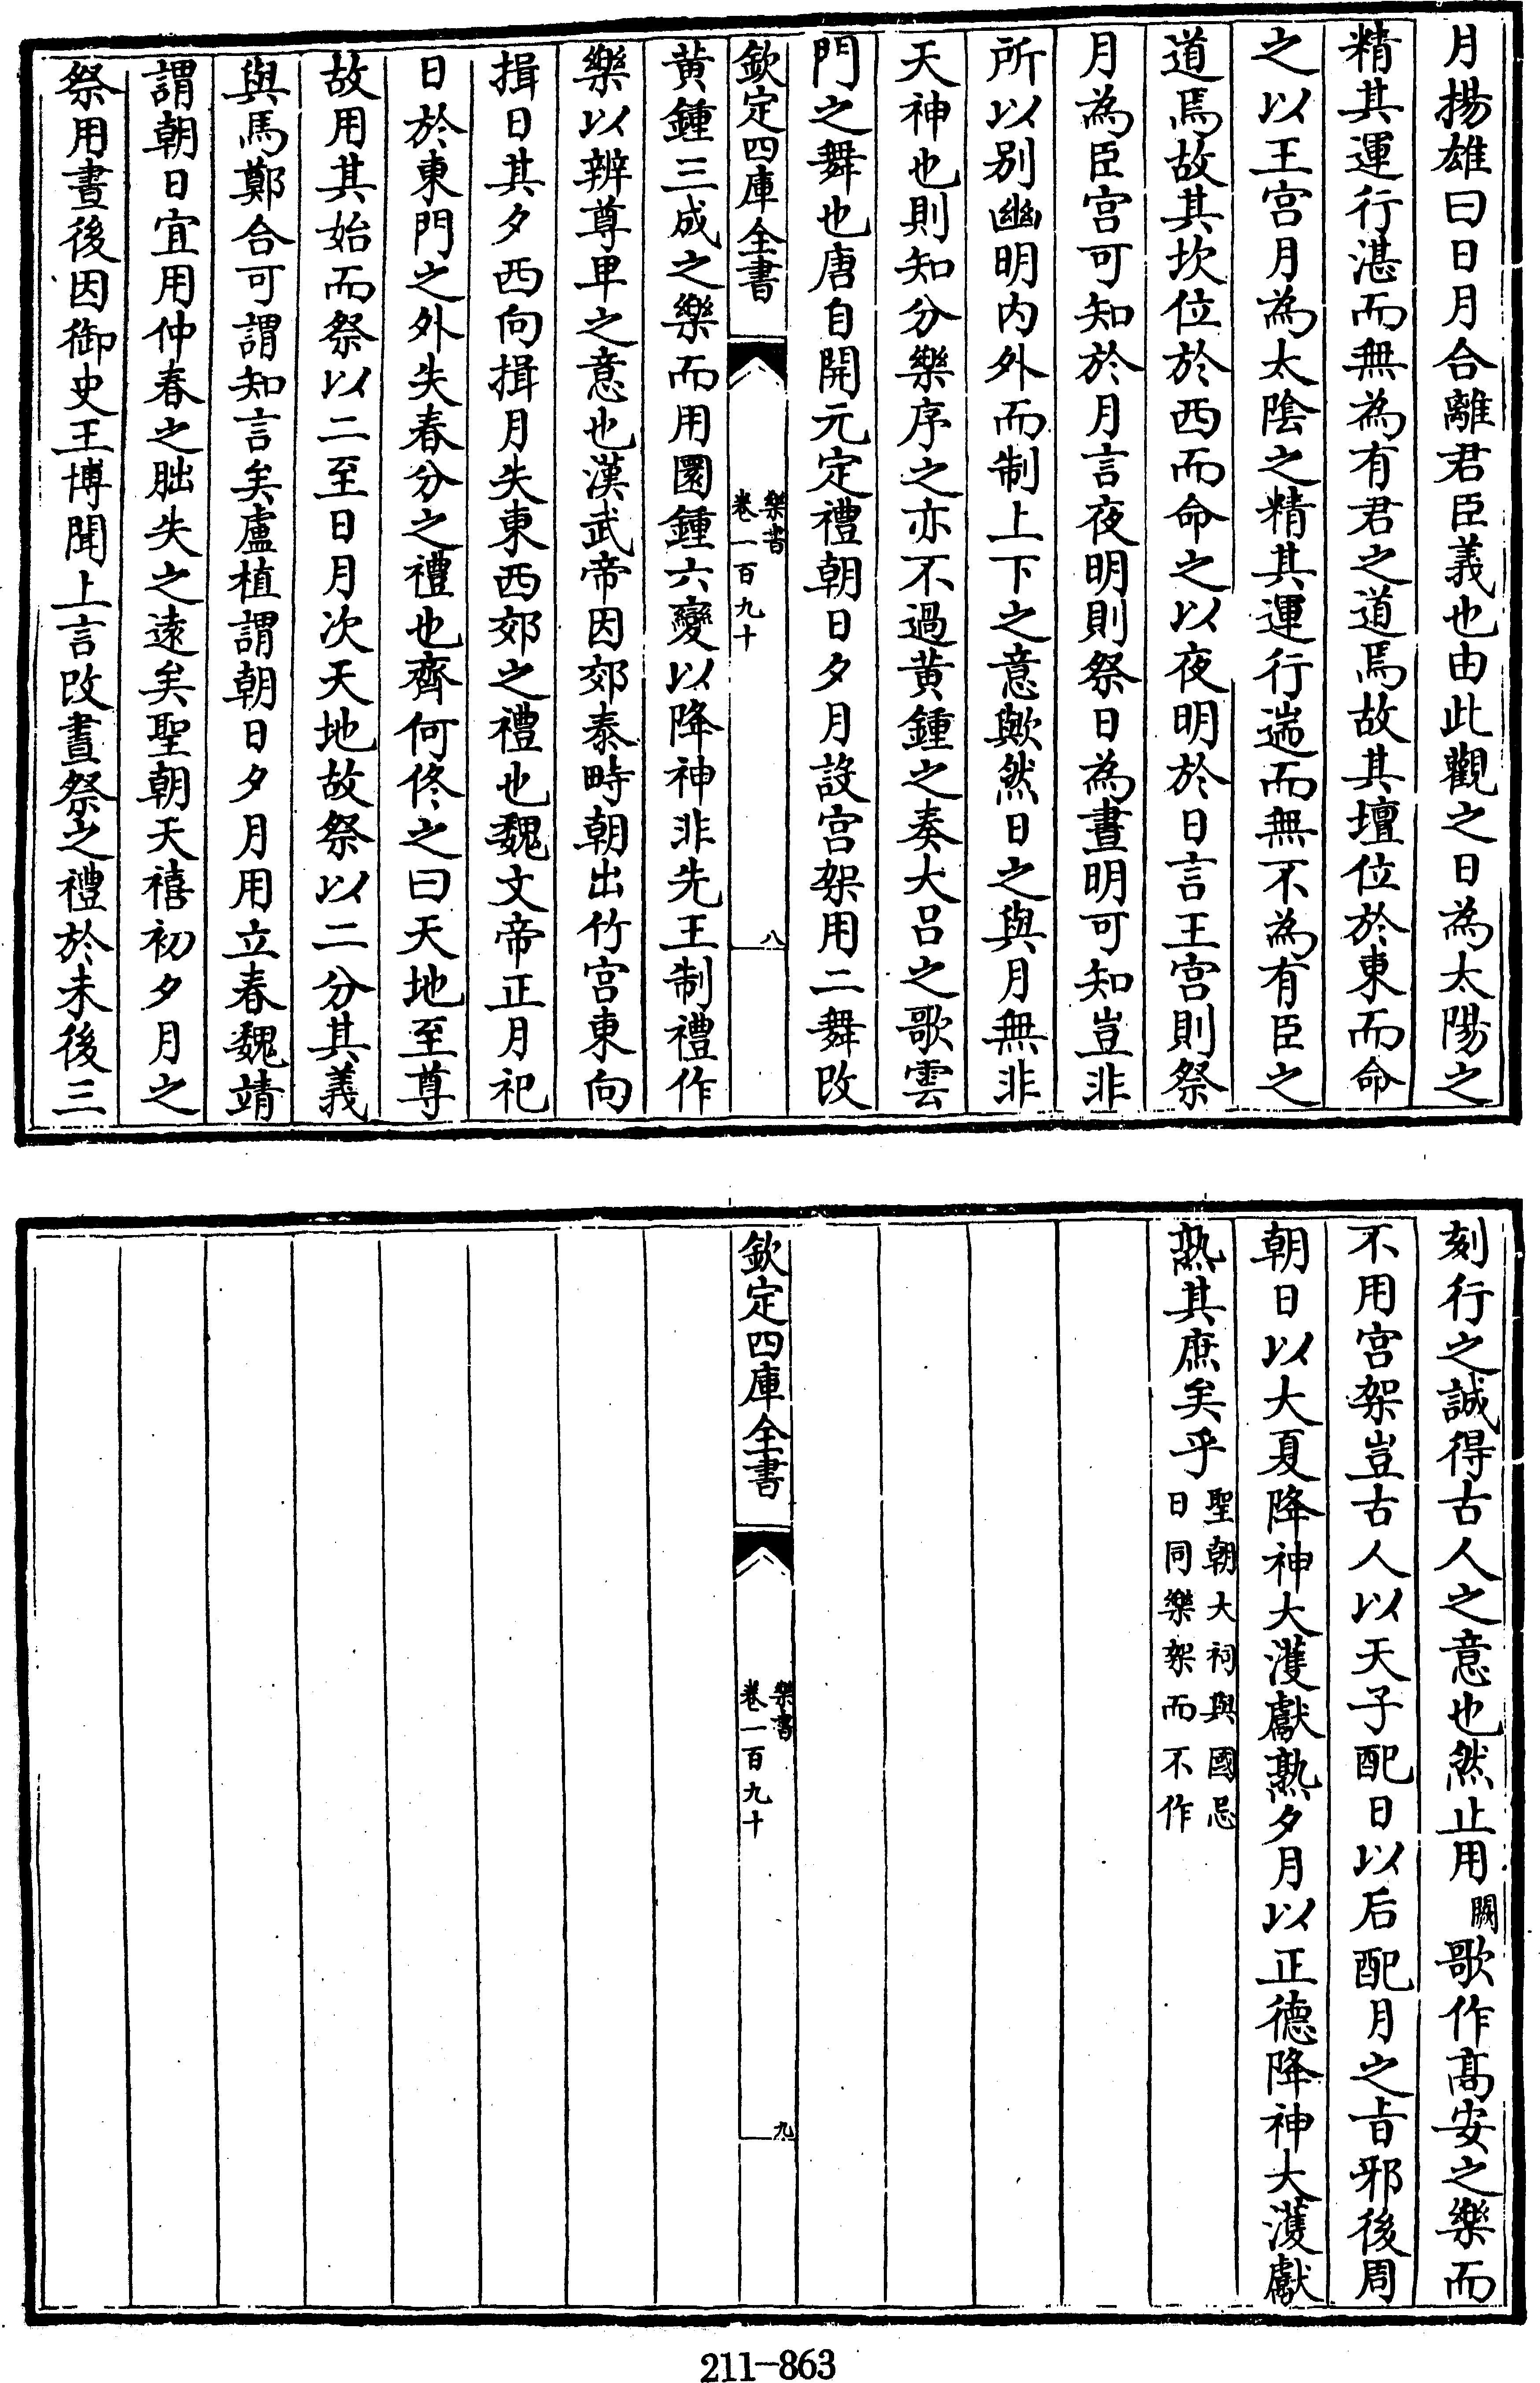 月揚雄曰日月合離君臣義也由此觀之日為太陽之
精其運行湛而無為有君之道焉故其壇位於東而命
之以王宮月為太陰之精其運行遄而無不為有臣之
道焉故其坎位於西而命之以夜明於日言王宮則祭
月為臣宮可知於月言夜明則祭日為晝明可知豈非
所以別幽明內外而制上下之意歟然日之與月無非
天神也則知分樂序之亦不過黃鍾之奏大呂之歌雲
門之舞也唐自開元定禮朝日夕月設宮架用二舞改
欽定四庫全書
樂書
卷一百九十
八
黃鍾三成之樂而用圜鍾六變以降神非先王制禮作
樂以辨尊卑之意也漢武帝因郊泰畤朝出竹宮東向
揖日其夕西向揖月失東西郊之禮也魏文帝正月祀
日於東門之外失春分之禮也齊何佟之曰天地至尊
故用其始而祭以二至日月次天地故祭以二分其義
與馬鄭合可謂知言矣盧植謂朝日夕月用立春魏靖
謂朝日宜用仲春之朏失之遠矣聖朝天禧初夕月之
祭用晝後因御史王博聞上言改晝祭之禮於未後三
刻行之誠得古人之意也然止用闕歌作高安之樂而
不用宮架豈古人以天子配日以后配月之旨邪後周
朝日以大夏降神大濩獻熟夕月以正德降神大濩獻
熟其庶矣乎
聖朝大祠與國忌
日同樂架而不作
欽定四庫全書
樂書
卷一百九十
九
211-863